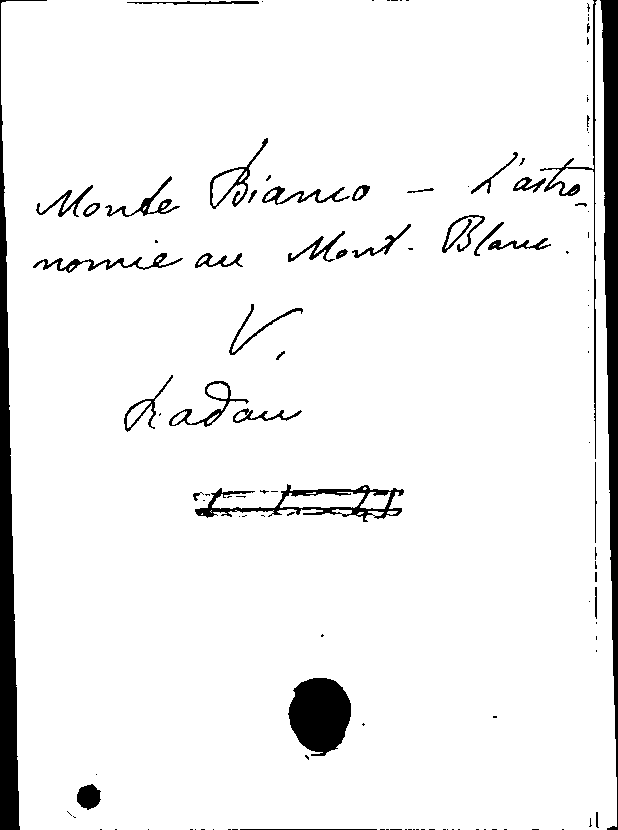 Monte Bianco - L'astro-
nomie au Mont-Blanc.
V.
Radau